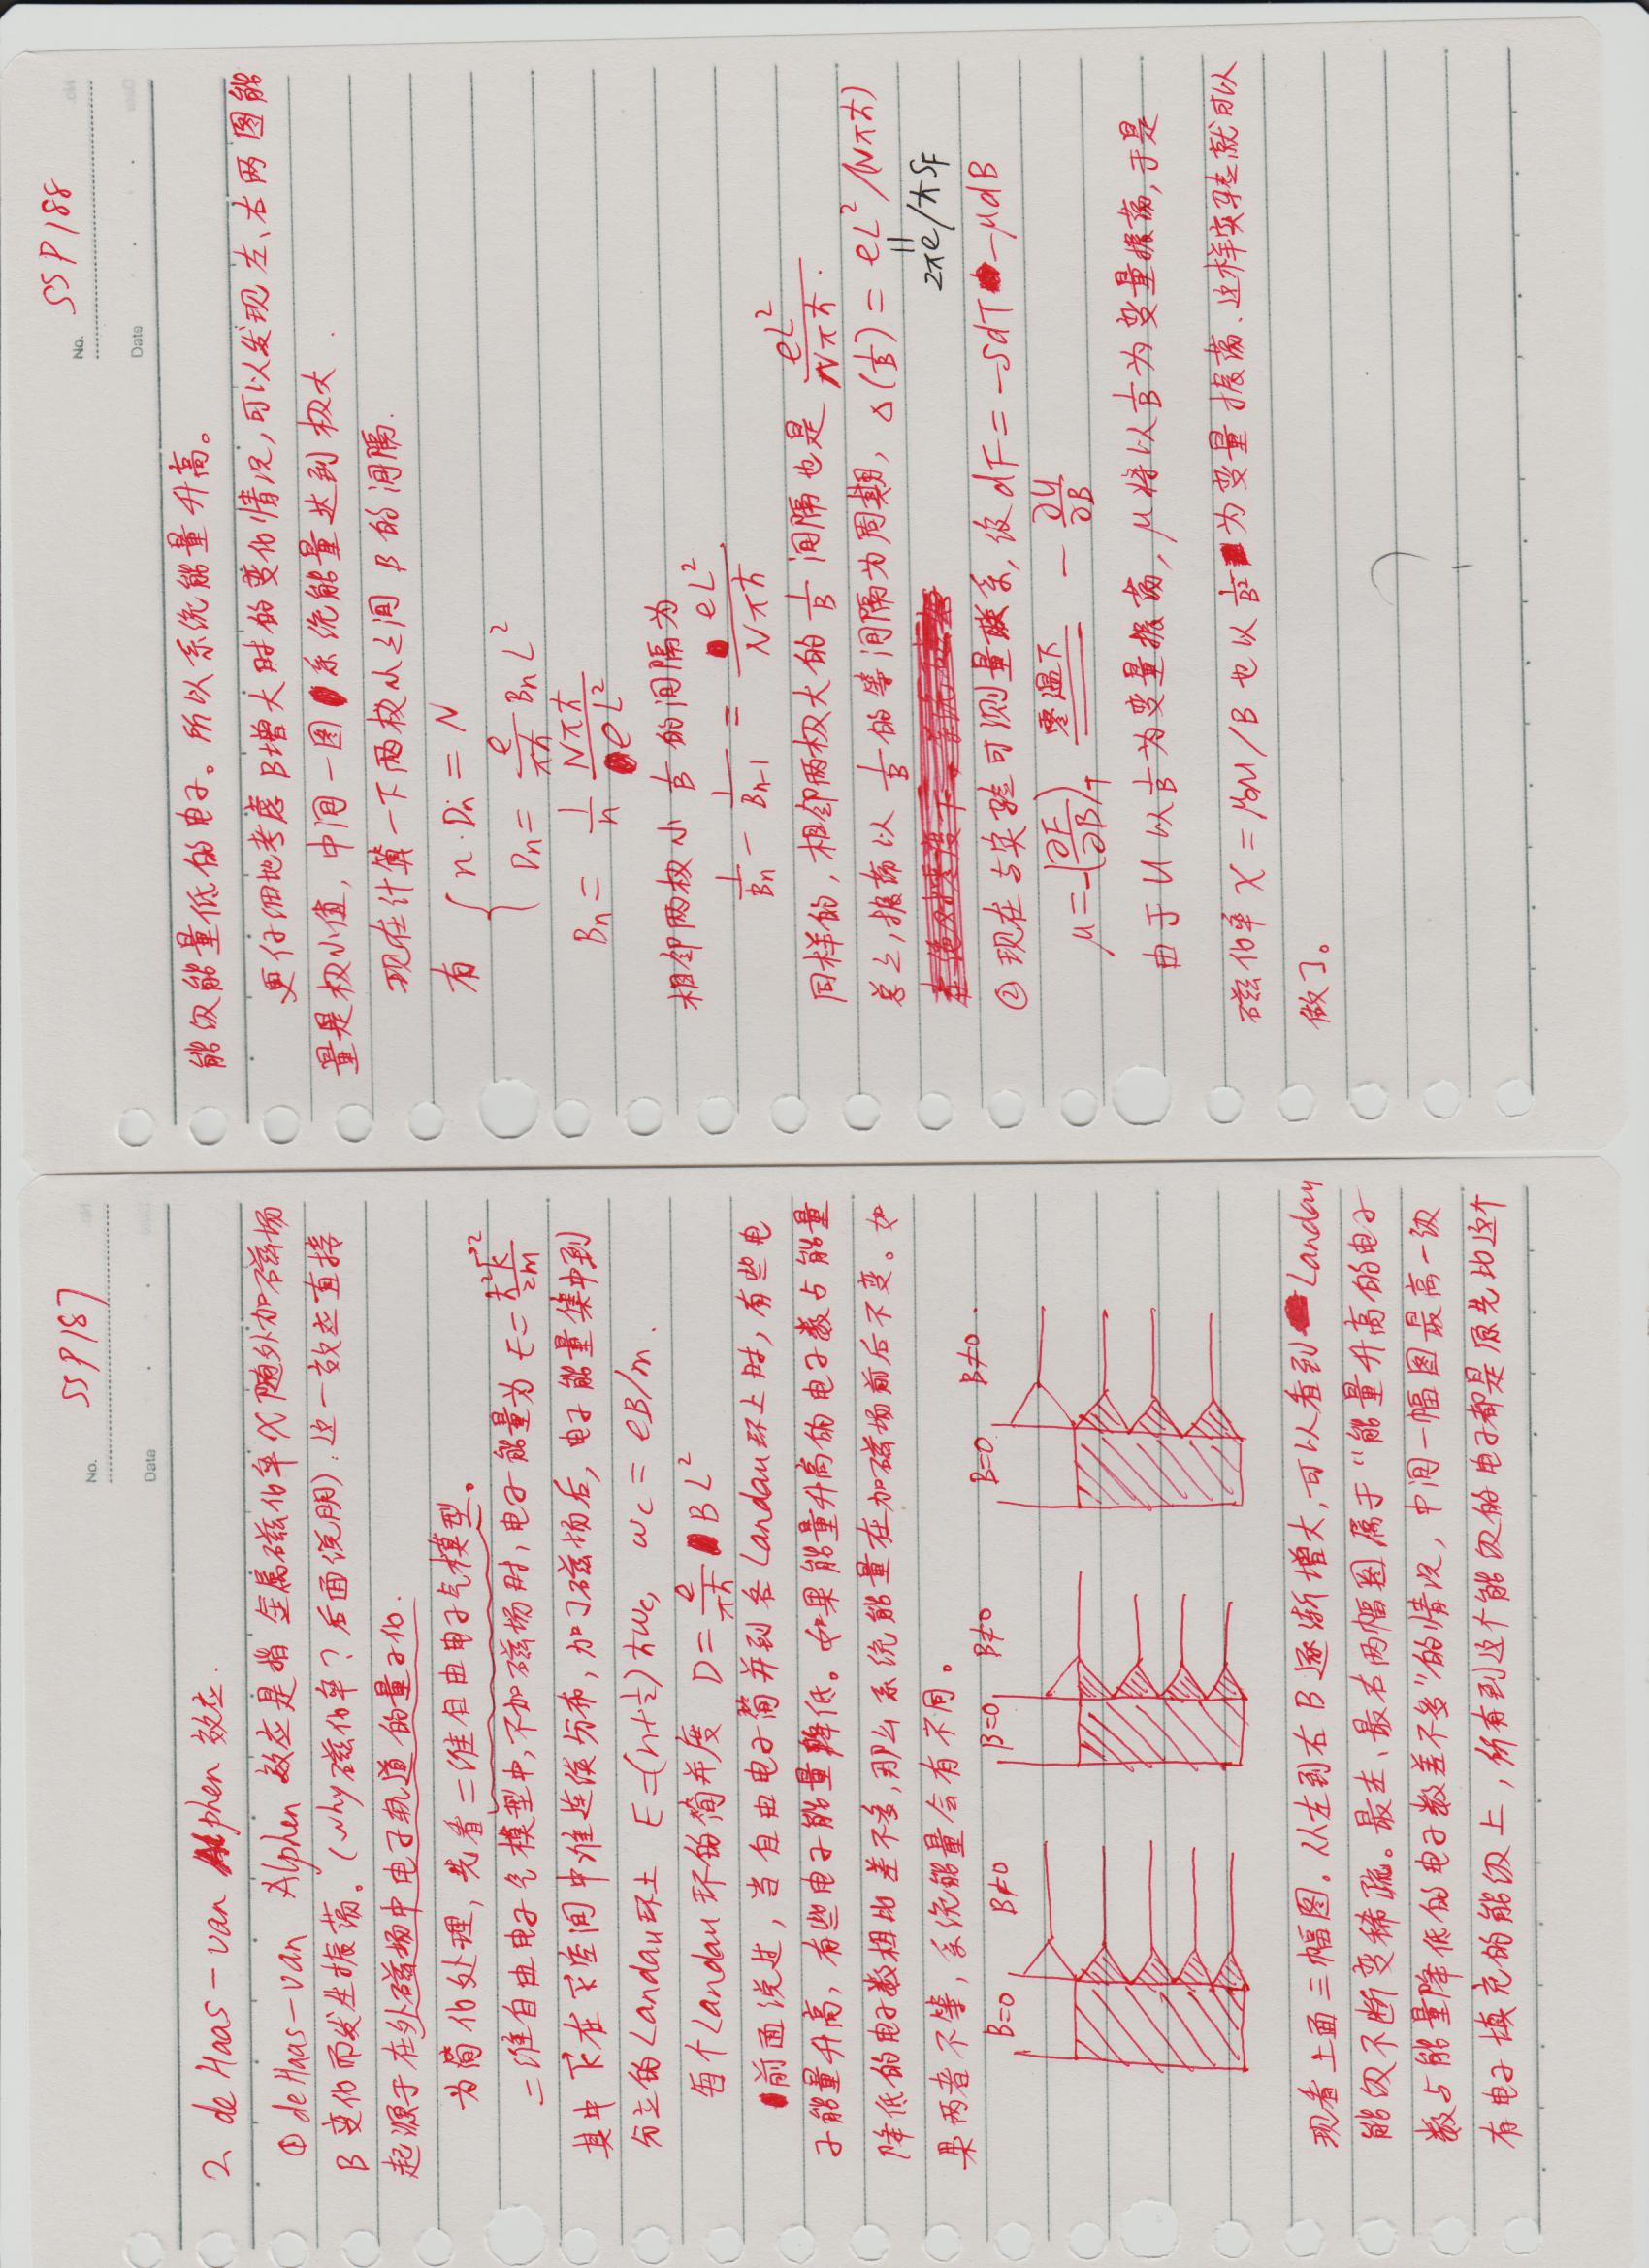 No. SSP187
Date
2. de Haas-van Alphen 效应.
① de Haas-van Alphen 效应是指 金属磁化率 χ 随外加磁场
B 变化而发生振荡。(why 磁化率? 后面说明). 这一效应直接
起源于在外磁场中电子轨道的量子化.
为简化处理, 先看二维自由电子气模型。
二维自由电子气模型中, 不加磁场时, 电子能量为 E = ħ²k⃗²/2m
其中 k⃗ 在 k⃗ 空间中准连续分布, 加了磁场后, 电子能量集中到
分立的 Landau 环上 E=(n+½)ħωc, ωc = eB/m.
每个 Landau 环的简并度 D = e/πħ BL²
前面说过, 当自由电子简并到各 Landau 环上时, 有些电
子能量升高, 有些电子能量降低。如果能量升高的电子数与能量
降低的电子数相比差不多, 那么系统能量在加磁场前后不变。如
果两者不等, 系统能量会有不同。
B=0 B≠0 B=0 B≠0 B=0 B≠0.
现看上面三幅图。从左到右 B 逐渐增大, 可以看到 Landau
能级不断变稀疏。最左、最右两幅图属于“能量升高的电子
数与能量降低的电子数差不多”的情况, 中间一幅图最高一级
有电子填充的能级上, 所有到这个能级的电子都是原先比这个
No. SSP188
Date
能级能量低的电子。所以系统能量升高。
更仔细地考虑 B 增大时的变化情况, 可以发现左、右两图能
量是极小值, 中间一图系统能量达到极大.
现在计算一下两极小之间 B 的间隔.
有 { n·Dn = N
Dn = e/πħ Bn L²
Bn = 1/n Nπħ/eL²
相邻两极小 1/B 的间隔为
1/Bn - 1/Bn-1 = eL²/Nπħ
同样的, 相邻两极大的 1/B 间隔也是 eL²/Nπħ.
总之, 振荡以 1/B 的等间隔为周期, Δ(1/B) = eL²/(Nπħ)
=
2πe/ħSF
② 现在与实验可测量联系, 设 dF = -SdT - μdB
μ = -(∂F/∂B)T 零温下 = -∂U/∂B
由于 U 以 1/B 为变量振荡, μ 将以 1/B 为变量振荡, 于是
磁化率 χ = μ₀M/B 也以 1/B² 为变量振荡. 这样实验就可以
做了。